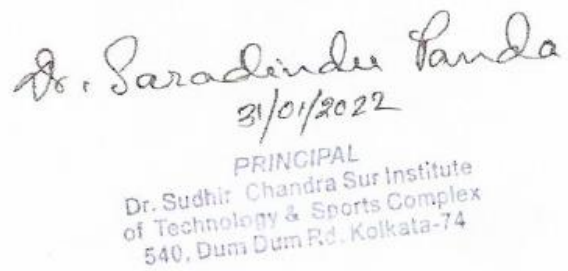 Dr. Saradindu Panda
31/01/2022
PRINCIPAL
Dr. Sudhir Chandra Sur Institute
of Technology & Sports Complex
540, Dum Dum Rd. Kolkata-74